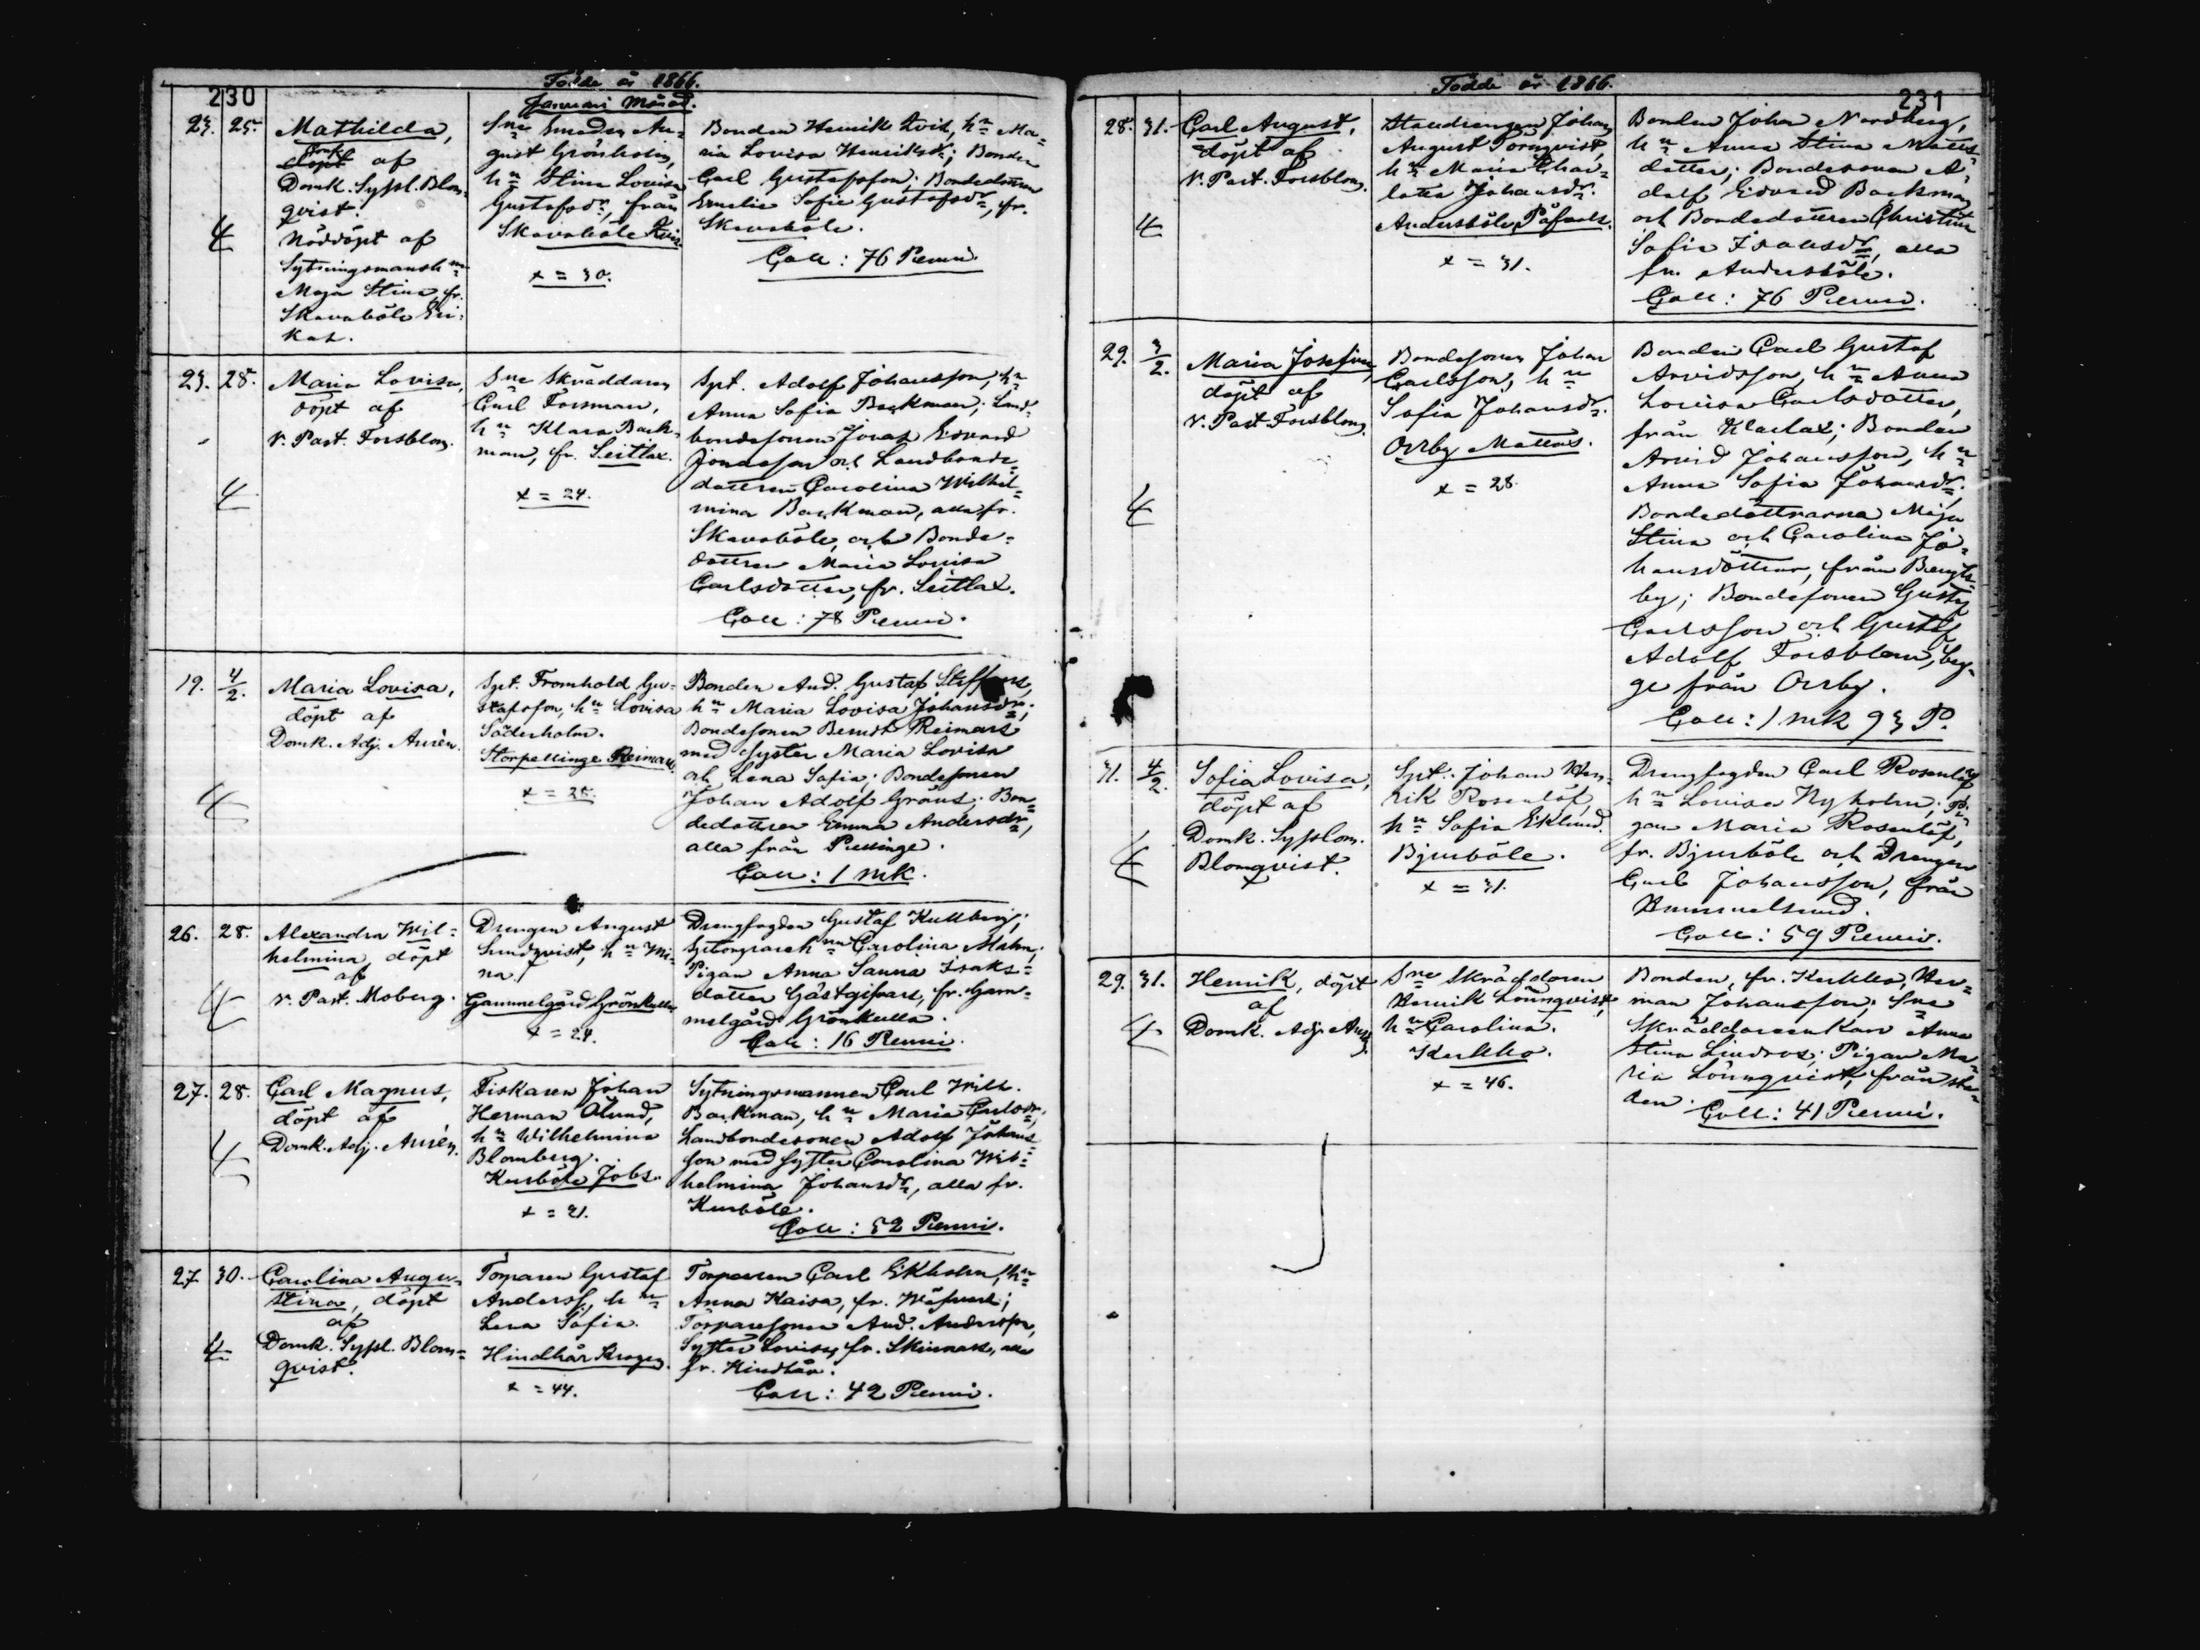 230
Födde år 1866.
Januari Månad.
23. 25. Mathilda,
döpt af
Domk. Syssl. Blom-
qvist.
Nöddöpt af
Sytningsmansh n
Maja Stina, fr.
Skavaböle Eri-
kas.
Sne Smeden Au-
gust Grönholm,
hn Stina Lovisa
Gustafsdr, från
Skavaböle
x = 30.
Bonden Henrik hn Ma-
ria Lovisa Henriksdr; Bonden
Carl Gustafsson; Bondedottren
Emelie Sofie Gustafsdr, fr.
Skavaböle.
Coll: 76 Penni.
23. 28. Maria Lovisa,
döpt af
V. Past. Forsblom.
Sne Skräddaren
Carl Forsman,
hn Klara Back-
man, fr. Seitlax.
x = 24.
Spt. Adolf Johansson, hn
Anna Sofia Backman; Land-
bondesonen Jonas Edvard
Jonasson och Landbonde-
dottren Carolina Wilhel-
mina Backman, alla fr.
Skavaböle, och Bonde-
dottren Maria Lovisa
Carlsdotter, fr. Seitlax.
Coll: 78 Penni.
19. 4/2. Maria Lovisa,
döpt af
Domk. Adj. Aurén.
Spt. Fromhold Gu-
stafsson, hn Lovisa
Söderholm.
Storpellinge Reimars.
Bonden And. Gustaf Steffans,
hn Maria Lovisa Johansdr;
Bondesonen Berndt Reimars
med syster Maria Lovisa
och Lena Sofia; Bondesonen
Johan Adolf Gröns; Bon-
dedottren Emma Andersdr,
alla från Pellinge.
Coll: 1 mk.
26. 28. Alexandra Wil-
helmina, döpt
af
V. Past. Moberg.
Drengen August
Lundqvist, hn Mi-
na.
Gammelgård Grönkulla
x = 24.
Drengfogden Gustaf Kullberg;
Carolina Malm;
Pigan Anna Sanna Isaks-
dotter Gästgifvars, fr. Gam-
melgård Grönkulla.
Coll: 16 Penni.
27. 28. Carl Magnus,
döpt af
Domk. Adj. Aurén.
Fiskaren Johan
Herman Ölund,
hn Wilhelmina
Blomberg.
Kurböle Jobs.
x = 31.
Sytningsmannen Carl Wilh.
Backman, hn Maria Carlsdr;
Landbondesonen Adolf Johans-
son med syster Carolina Wil-
helmina Johansdr, alla fr.
Kurböle.
Coll: 52 Penni.
27 30. Carolina Augu-
stina, döpt
af
Domk. Syssl. Blom-
qvist.
Torparen Gustaf
Anderss., hn
Lena Sofia.
Hindhår Krogen.
x = 44.
Torparen Carl Ekholm, hn
Anna Kaisa, fr.
Torparesonen And. Andersson,
Syster Lovisa, fr. Skinnars, alla
fr. Hindhår.
Coll: 42 Penni.
231
Födde år 1866.
28. 31. Carl August,
döpt af
V. Past. Forsblom.
Staudrengen Johan
August Törnqvist,
hn Maria Char-
lotta Johansdr.
Andersböle Påfvals.
x = 31.
Bonden Johan Nordberg,
hn Anna Stina Matts-
dotter; Bondesonen A-
dolf Edvard Backman
och Bondedottren Christina
Sofia Isaksdr, alla
fr. Andersböle.
Coll: 76 Penni.
29. 3/2. Maria Josefina,
döpt af
V. Past. Forsblom.
Bondesonen Johan
Carlsson, hn
Sofia Johansdr.
Orrby Mattas.
x = 28.
Bonden Carl Gustaf
Arvidsson, hn Anna
Lovisa Carlsdotter,
från Klarlax; Bonden
Arvid Johansson, hn
Anna Sofia Johansdr;
Bondedöttrarna Maja
Stina och Carolina Jo-
hansdöttrar, från Bengts-
by; Bondesonen Gustaf
Carlsson och Gustaf
Adolf Forsblom, beg-
ge från Orrby.
Coll: 1 mk 93 P.
31. 4/2. Sofia Lovisa,
döpt af
Domk. Sysslom.
Blomqvist.
Spt. Johan Hen-
rik Rosenlöf,
hn Sofia Eklund.
Bjurböle.
x = 31.
Drengfogden Carl Rosenlöf,
hn Lovisa Nyholm; Pi-
gan Maria Rosenlöf,
fr. Bjurböle och Drengen
Carl Johansson, från
Hummelsund.
Coll: 59 Penni.
29. 31. Henrik, döpt
af
Domk. Adj. Aurén.
Sne Skräddaren
Henrik Lönnqvist,
hn Carolina.
Kerkko.
x = 46.
Bonden, fr. Kerkko, Her-
man Johansson; Sne
Skräddareenkan Anna
Stina Lindros; Pigan Ma-
ria Lönnqvist, från sta-
den.
Coll: 41 Penni.